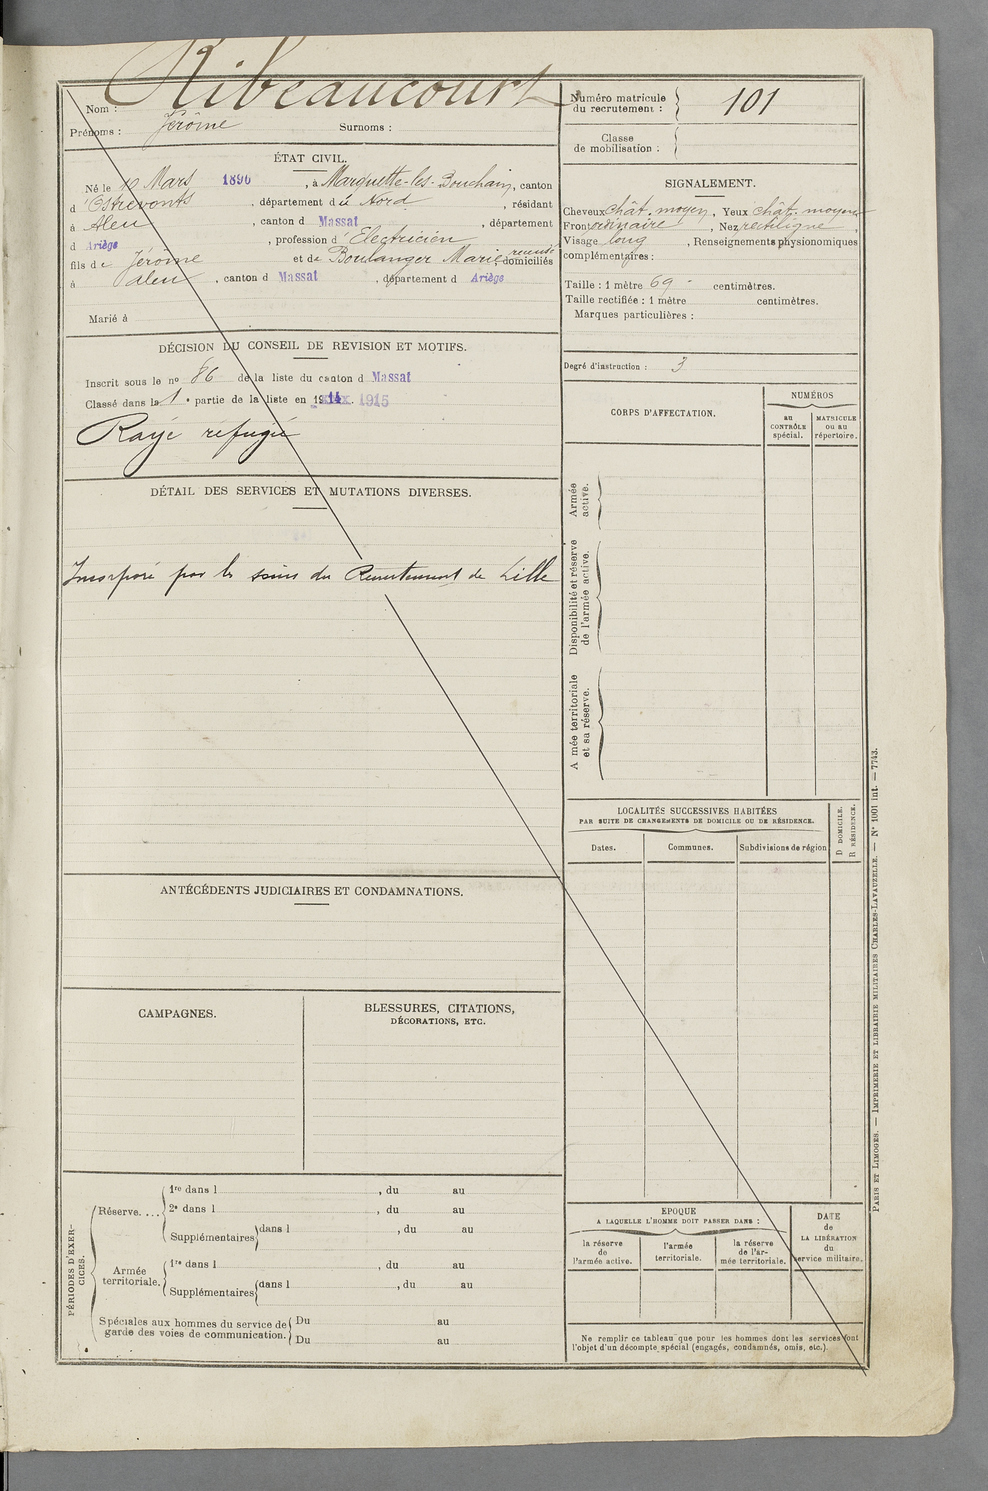 Ribeaucourt
Nom :
Prénoms : Jérôme Surnoms :
ÉTAT CIVIL.
Né le 10 Mars 1896, à Marquette-lez-Bouchain, canton
d'Ostrevents, département du Nord, résidant
à Aleu, canton d Massat, département
d Ariège, profession d'Electricien
fils de Jérôme et de Boulanger Marie, domiciliés
à Aleu, canton d Massat, département d Ariège
Marié à
DÉCISION DU CONSEIL DE REVISION ET MOTIFS.
Inscrit sous le no 86 de la liste du canton d Massat
Classé dans la 1e partie de la liste en 1914. 1915
Rayé réfugié
DÉTAIL DES SERVICES ET MUTATIONS DIVERSES.
Incorporé par les soins du Recrutement de Lille
ANTÉCÉDENTS JUDICIAIRES ET CONDAMNATIONS.
CAMPAGNES.
BLESSURES, CITATIONS,
DÉCORATIONS, ETC.
PÉRIODES D'EXER-
CICES.
Réserve. ...
1re dans l , du au
2e dans l , du au
Supplémentaires dans l , du au
Armée
territoriale.
1re dans l , du au
Supplémentaires dans l , du au
Spéciales aux hommes du service de
garde des voies de communication.
Du au
Du au
Numéro matricule
du recrutement : 101
Classe
de mobilisation :
SIGNALEMENT.
Cheveux chât. moyen, Yeux chât. moyens
Front ordinaire, Nez rectiligne,
Visage long, Renseignements physionomiques
complémentaires :
Taille : 1 mètre 69 centimètres.
Taille rectifiée : 1 mètre centimètres.
Marques particulières :
Degré d'instruction : 3
CORPS D'AFFECTATION.
NUMÉROS
au
CONTRÔLE
spécial.
MATRICULE
ou au
répertoire.
Armée
active.
Disponibilité et réserve
de l'armée active.
A mée territoriale
et sa réserve.
LOCALITÉS SUCCESSIVES HABITÉES
PAR SUITE DE CHANGEMENTS DE DOMICILE OU DE RÉSIDENCE.
Dates.
Communes.
Subdivisions de région
D DOMICILE.
R RÉSIDENCE.
EPOQUE
A LAQUELLE L'HOMME DOIT PASSER DANS :
la réserve
de
l'armée active.
l'armée
territoriale.
la réserve
de l'ar-
mée territoriale.
DATE
de
LA LIBÉRATION
du
service militaire.
Ne remplir ce tableau que pour les hommes dont les services font
l'objet d'un décompte spécial (engagés, condamnés, omis, etc.).
PARIS ET LIMOGES. — IMPRIMERIE ET LIBRAIRIE MILITAIRES CHARLES-LAVAUZELLE. — N° 1001 int. — 7743.